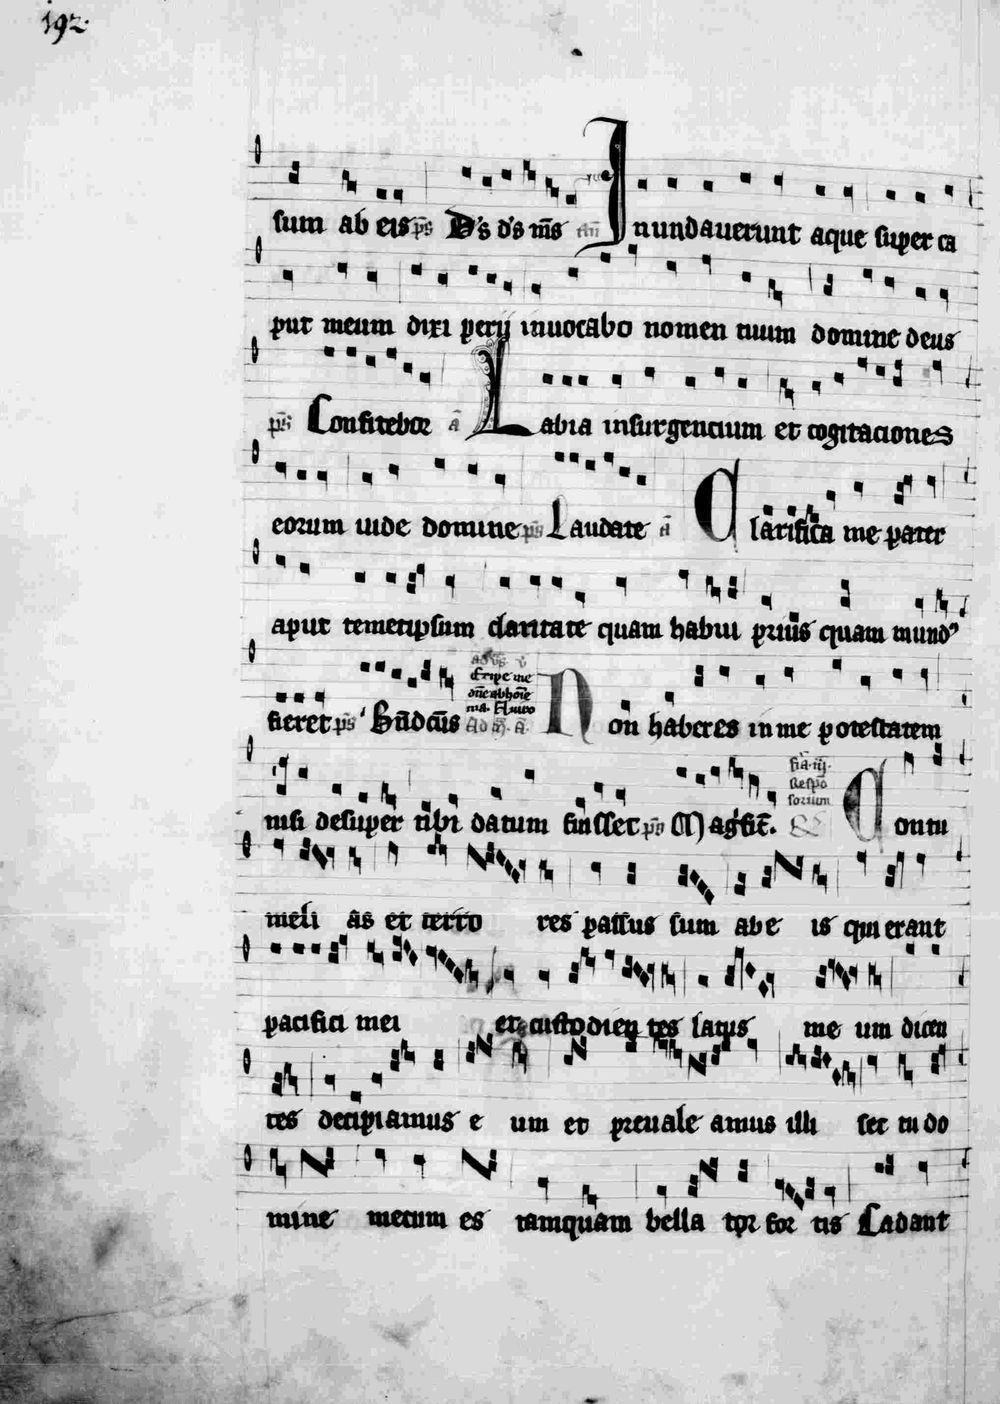 192.
sum ab eis p̄s D's d's m̄s an̄ Inundauerunt aque super ca
put meum dixi perij inuocabo nomen tuum domine deus
p̄s Confitebor ā Labia insurgentium et cogitaciones
eorum uide domine p̄s Laudate ā Clarifica me pater
aput temetipsum claritate quam habui prius quam mund9
fieret p̄s Bn̄dctūs Eripe me dn̄e ab hoīe ma. Ad m̄. ā. Non haberes in me potestatem
nisi desuper tibi datum fuisset p̄s Magfict̄. fia. iiij. Respō sorium Contu
meli as et terro res passus sum ab e is qui erant
pacifici mei et custodien tes latus me um dicen
tes decipiamus e um et preuale amus illi set tu do
mine mecum es tamquam bella tor for tis Cadant